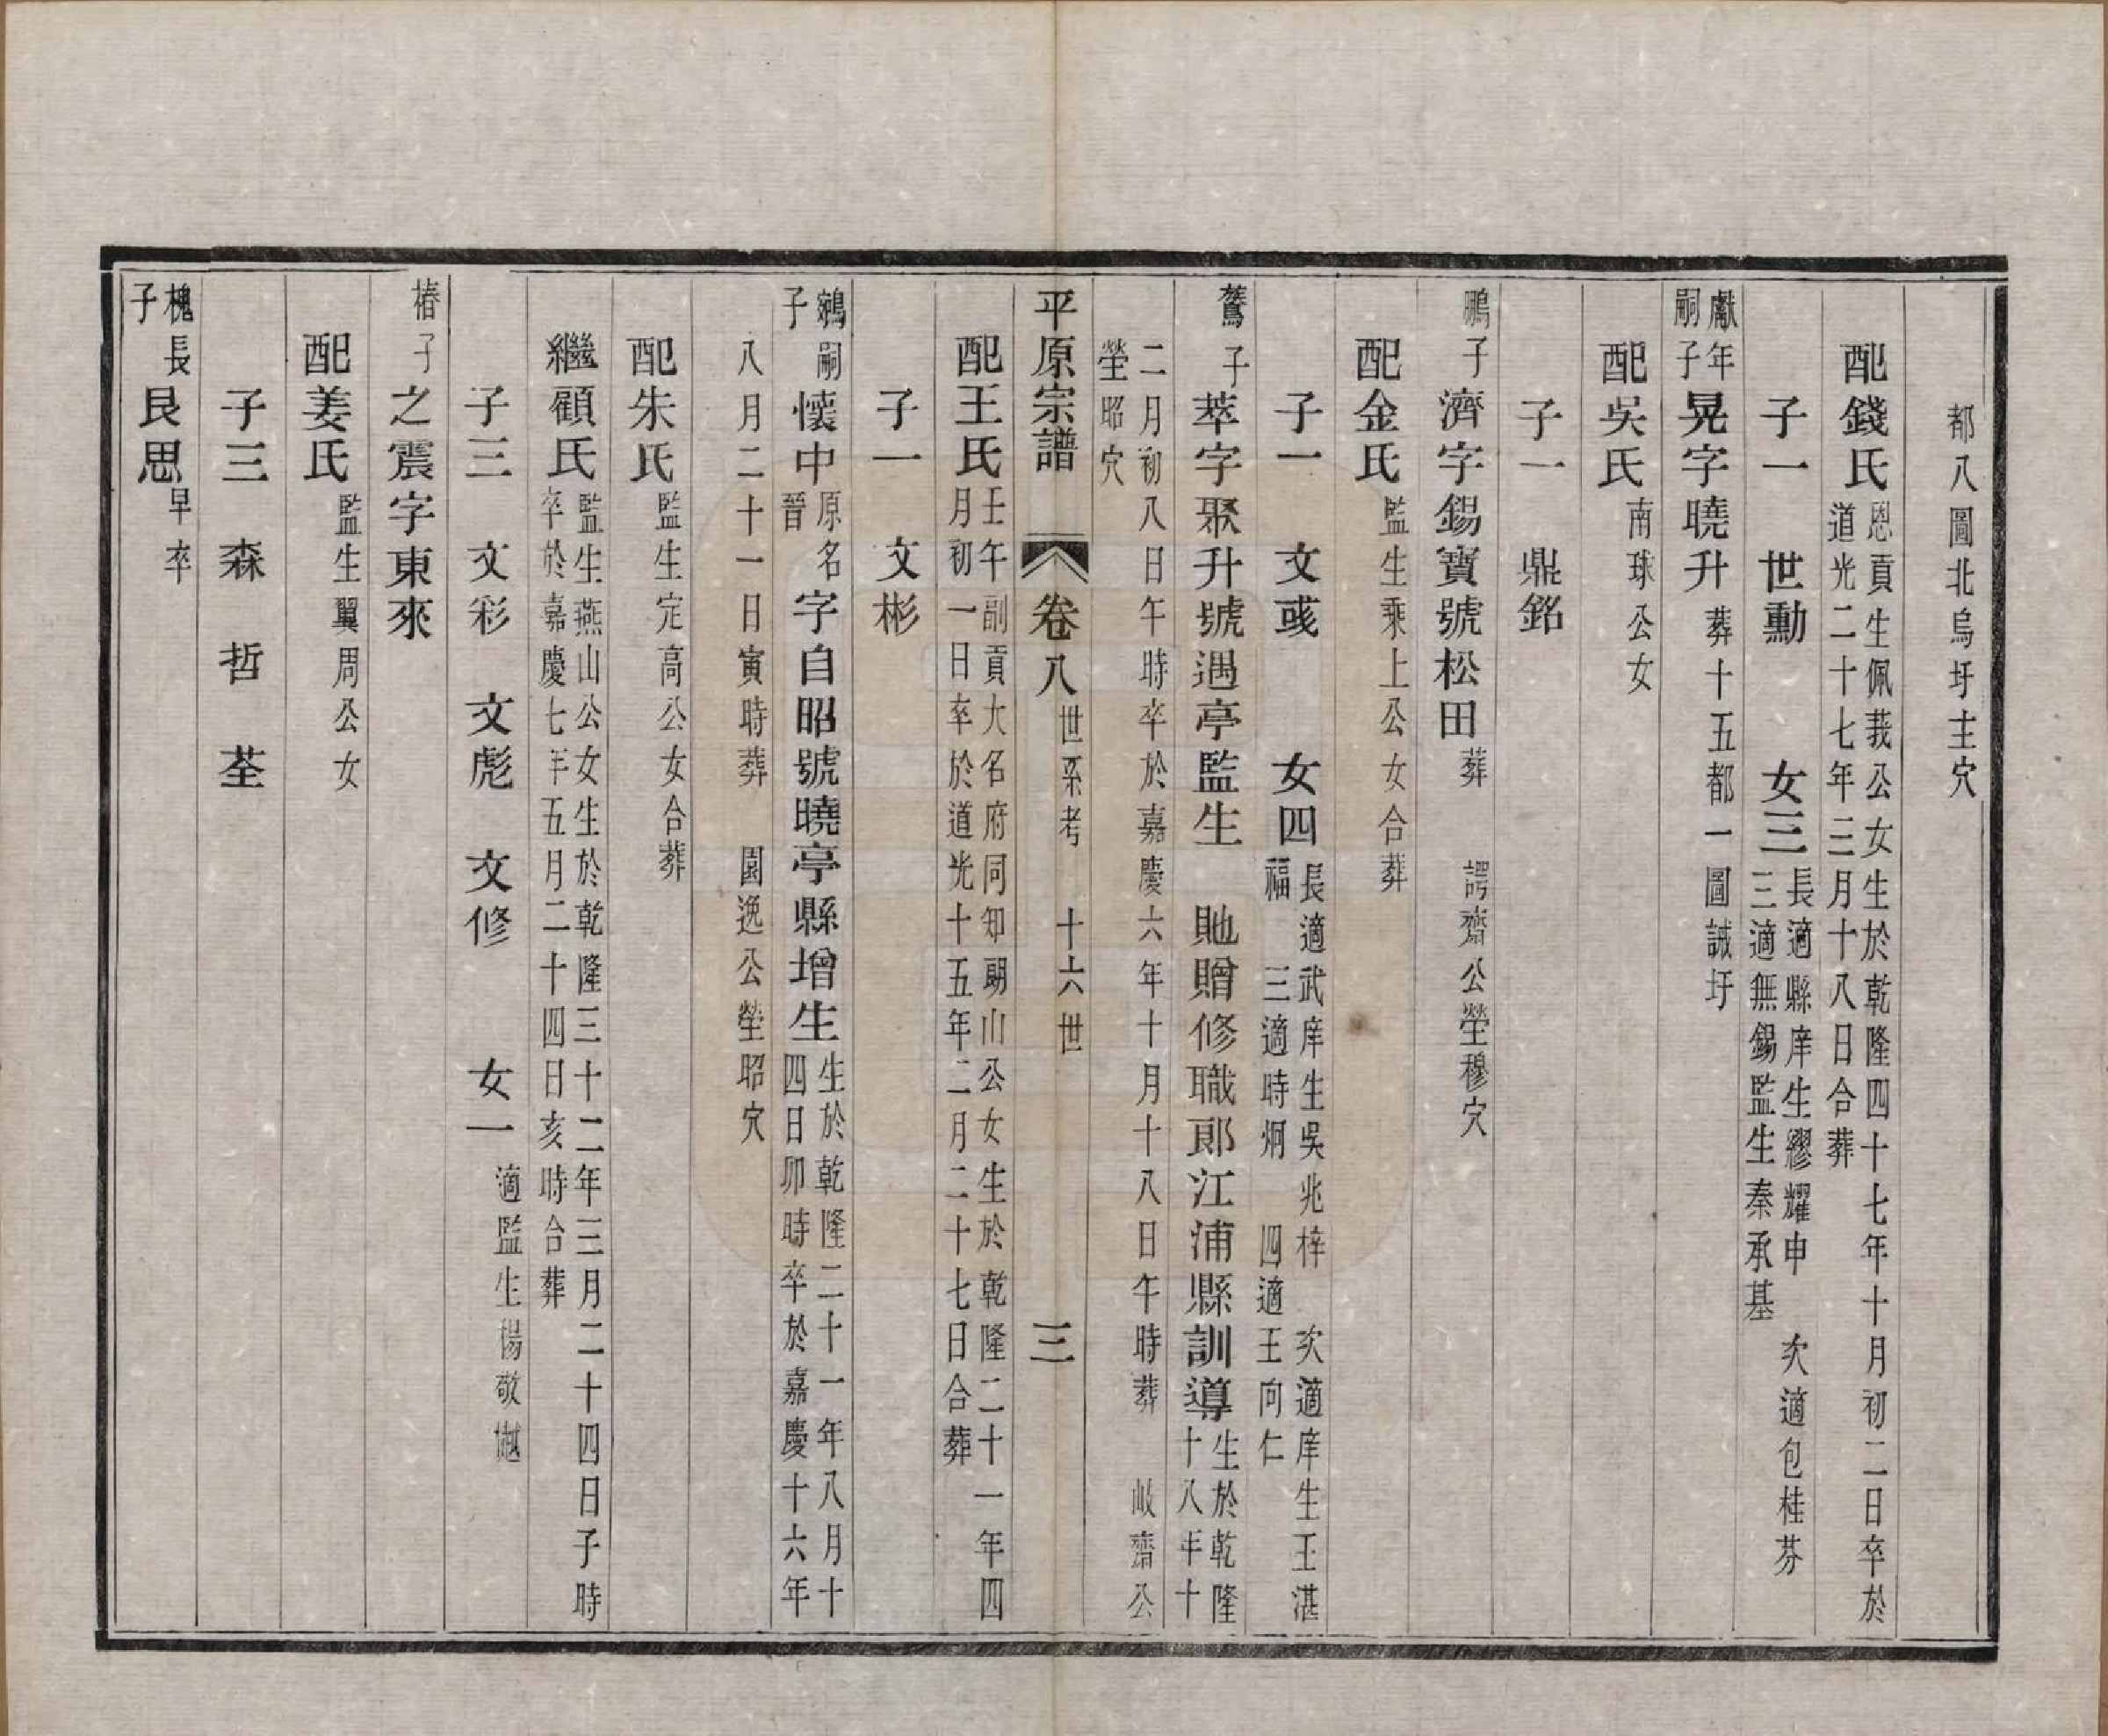 都八圖北烏圩主穴
配錢氏恩貢生佩莪公女生於乾隆四十七年十月初二日卒於
道光二十七年三月十八日合葬
子一　世勳　女三長適縣庠生繆耀申　次適包桂芬
三適無錫監生秦承基
獻年嗣子晃字曉升葬十五都一圖誠圩
配吳氏南球公女
子一　鼎銘
鵬子濟字錫寶號松田葬　諤齋公塋穆穴
配金氏監生乘上公女合葬
子一　文彧　女四長適武庠生吳兆梓　次適庠生王湛
福　三適時炯　四適王向仁
鶩子萃字聚升號遇亭監生　貤贈修職郎江浦縣訓導生於乾隆
十八年十
二月初八日午時卒於嘉慶六年十月十八日午時葬　岐齋公
塋昭穴
平原宗譜　卷八　世系考　十六世　三
配王氏壬午副貢大名府同知朗山公女生於乾隆二十一年四
月初一日卒於道光十五年二月二十七日合葬
子一　文彬
鵷嗣子懷中原名晉字自昭號曉亭縣增生生於乾隆二十一年八月十
四日卯時卒於嘉慶十六年
八月二十一日寅時葬　園逸公塋昭穴
配朱氏監生定高公女合葬
繼顧氏監生燕山公女生於乾隆三十二年三月二十四日子時
卒於嘉慶七年五月二十四日亥時合葬
子三　文彩　文彪　文修　女一適監生楊敬
椿子之震字東來
配姜氏監生翼周公女
子三　森　哲　荃
槐長子艮思早卒